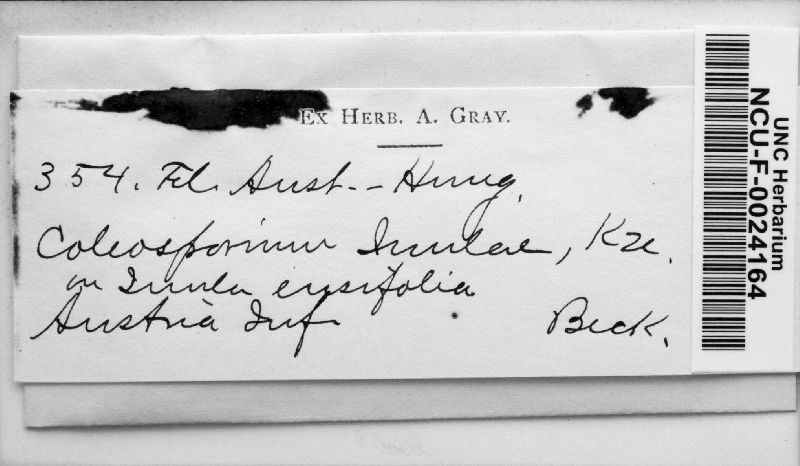 Ex Herb. A. Gray.
354. Fl. Aust.-Hung.
Coleosporium Inulae, Kze.
on Inula ensifolia
Austria Inf.
Beck.
UNC Herbarium
NCU-F-0024164